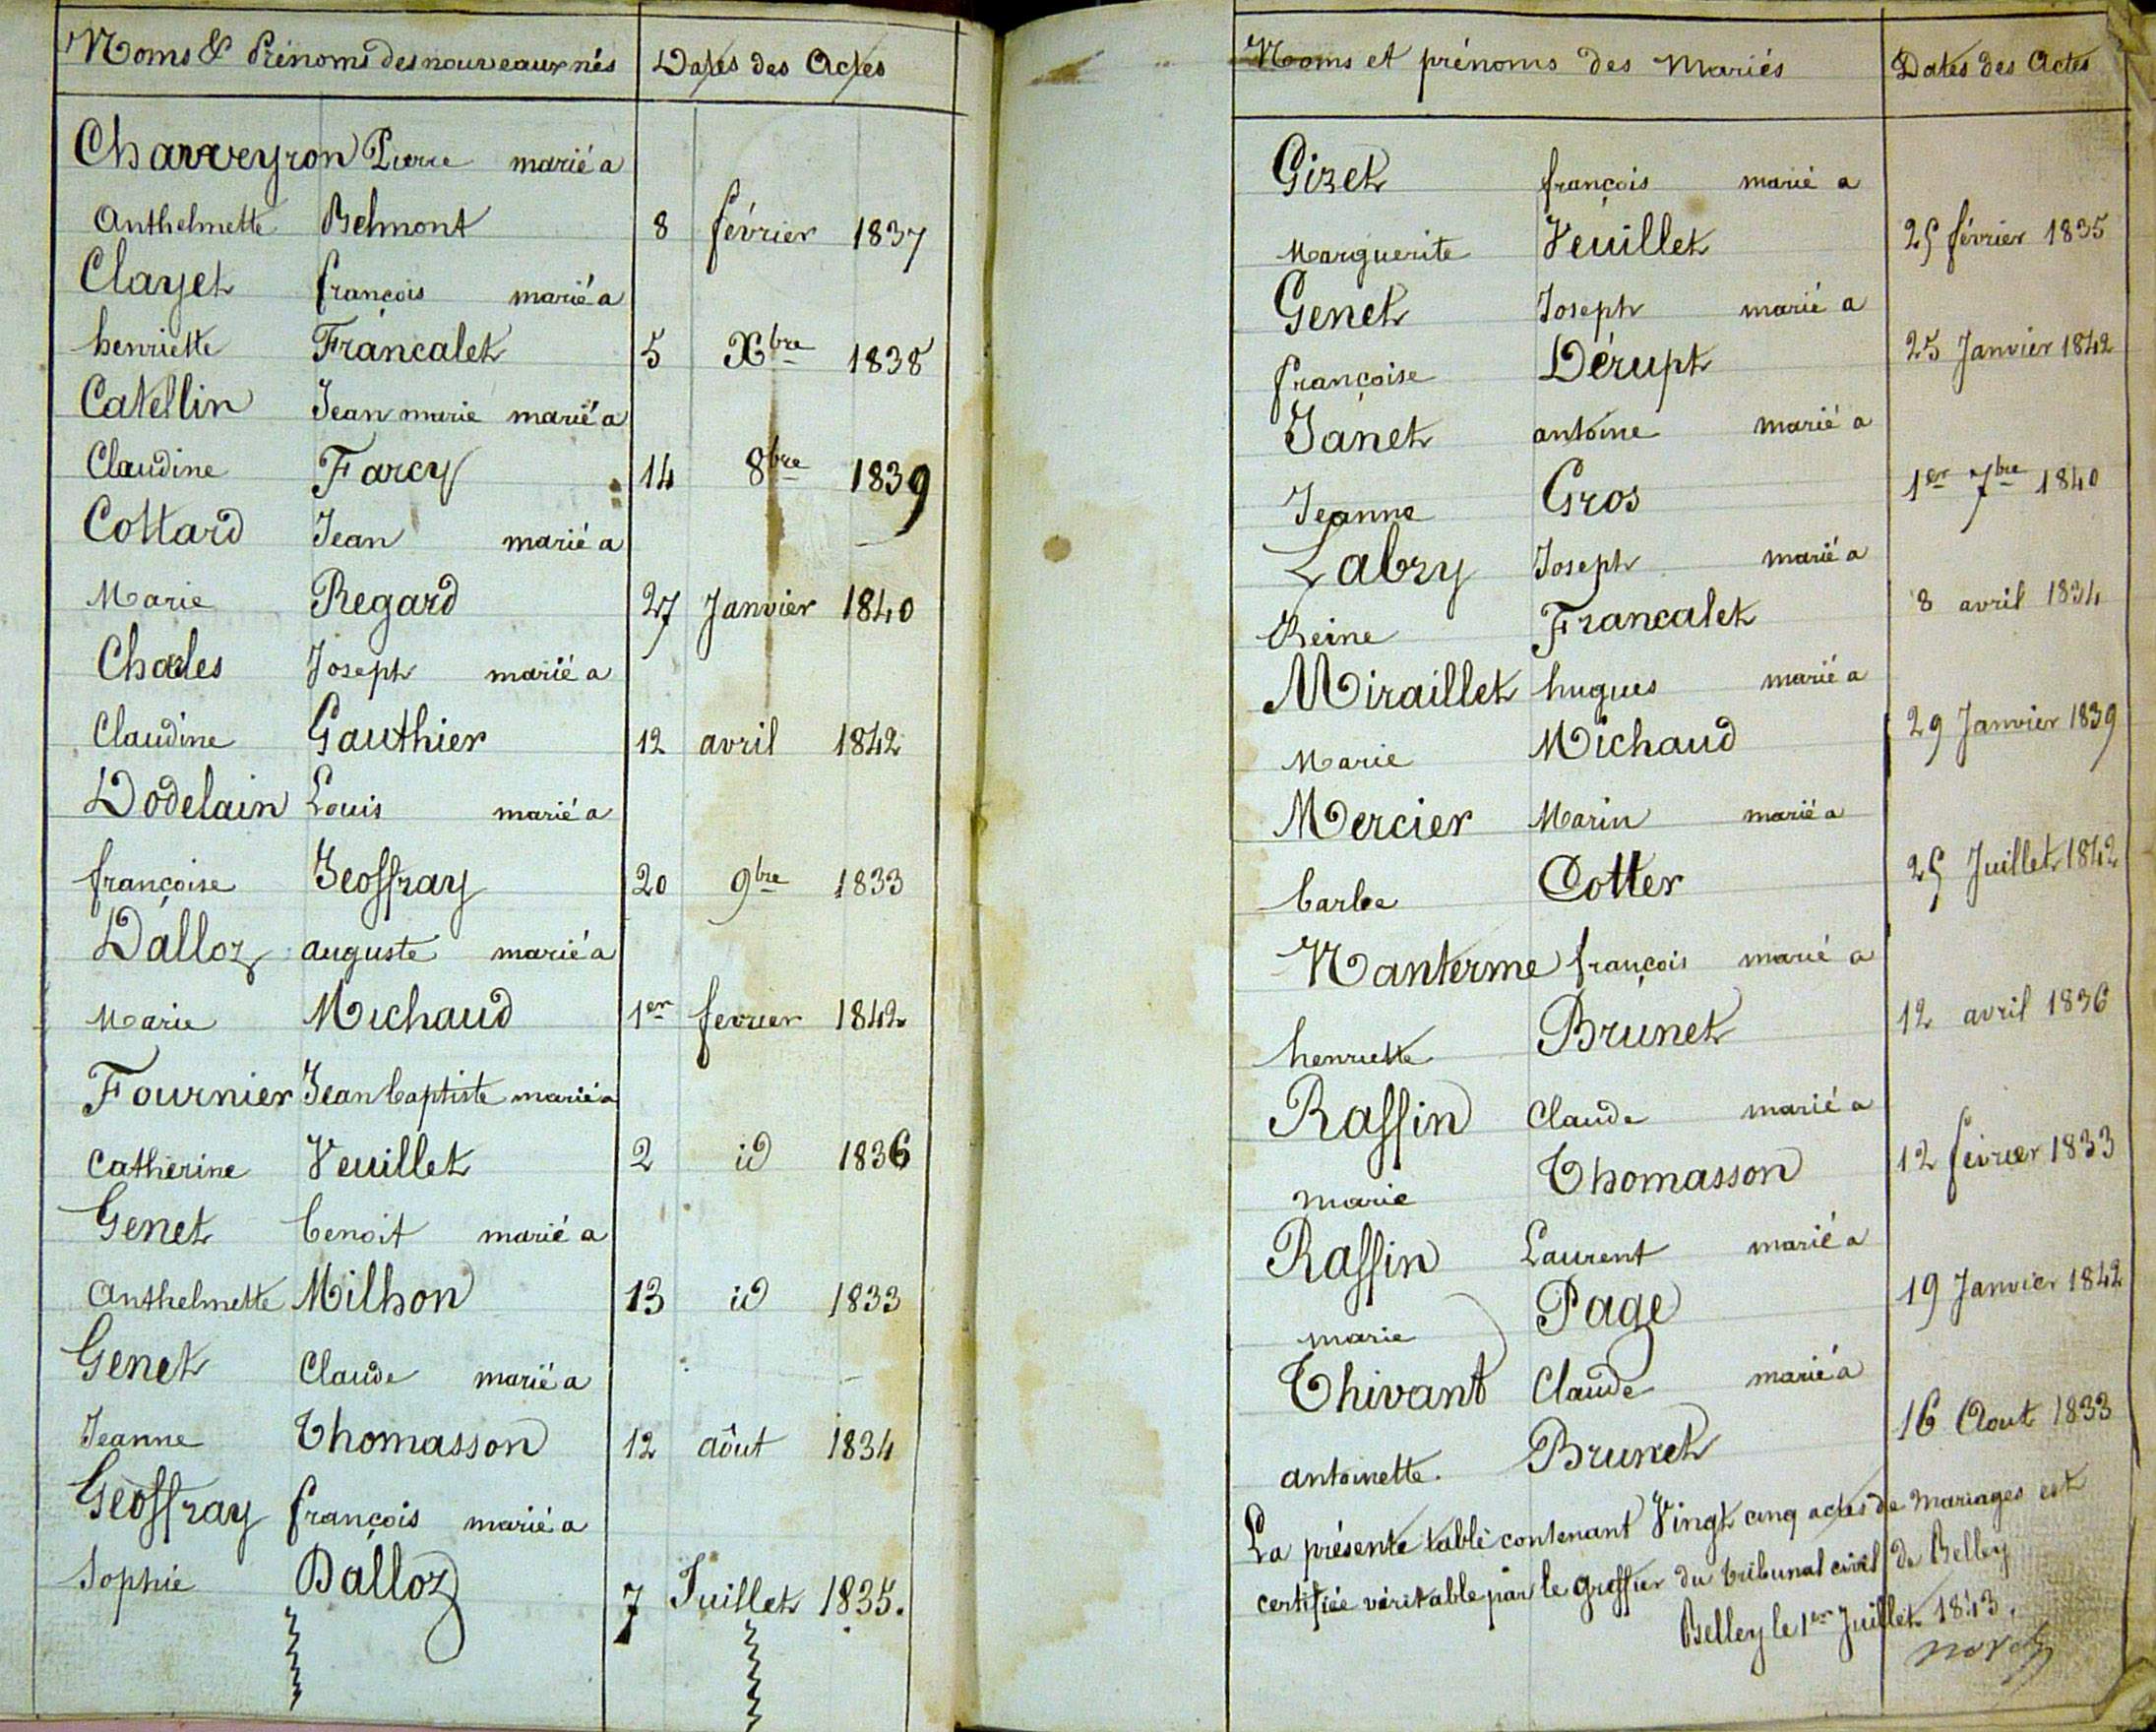 Noms & Prénoms des nouveaux nés Dates des Actes
Charveyron Pierre marié a
Anthelmette Belmont 8 février 1837
Clayet françois marié a
henriette Francalet 5 Xbre 1838
Catellin Jean marie marié a
Claudine Farcy 14 8bre 1839
Cottard Jean marié a
Marie Regard 27 Janvier 1840
Charles Joseph marié a
Claudine Gauthier 12 avril 1842
Dodelain Louis marié a
françoise Geoffray 20 9bre 1833
Dalloz auguste marié a
Marie Michaud 1er fevrier 1842
Fournier Jean baptiste marié a
Catherine Veuillet 2 id 1836
Genet benoit marié a
Anthelmette Milhon 13 id 1833
Genet Claude marié a
Jeanne Thomasson 12 aôut 1834
Geoffray françois marié a
Sophie Dalloz 7 Juillet 1835.
Noms et prénoms des Mariés Dates des Actes
Gizet françois marié a
Marguerite Veuillet 25 février 1835
Genet Joseph marié a
françoise Dérupt 25 Janvier 1842
Janet antoine marié a
Jeanne Gros 1er 7bre 1840
Labry Joseph marié a
Reine Francalet 8 avril 1834
Miraillet hugues marié a
Marie Michaud 29 Janvier 1839
Mercier Marin marié a
barbe Cotter 25 Juillet 1842
Nanterme françois marié a
henriette Brunet 12 avril 1836
Raffin Claude marié a
marie Thomasson 12 fevrier 1833
Raffin Laurent marié a
marie Page 19 Janvier 1842
Thivant Claude marié a
antoinette. Brunet 16 Aout 1833
La présente table contenant Vingt cinq actes de mariages est
certifiée véritable par le greffier du tribunal civil de Belley
Belley le 1er Juillet 1843.